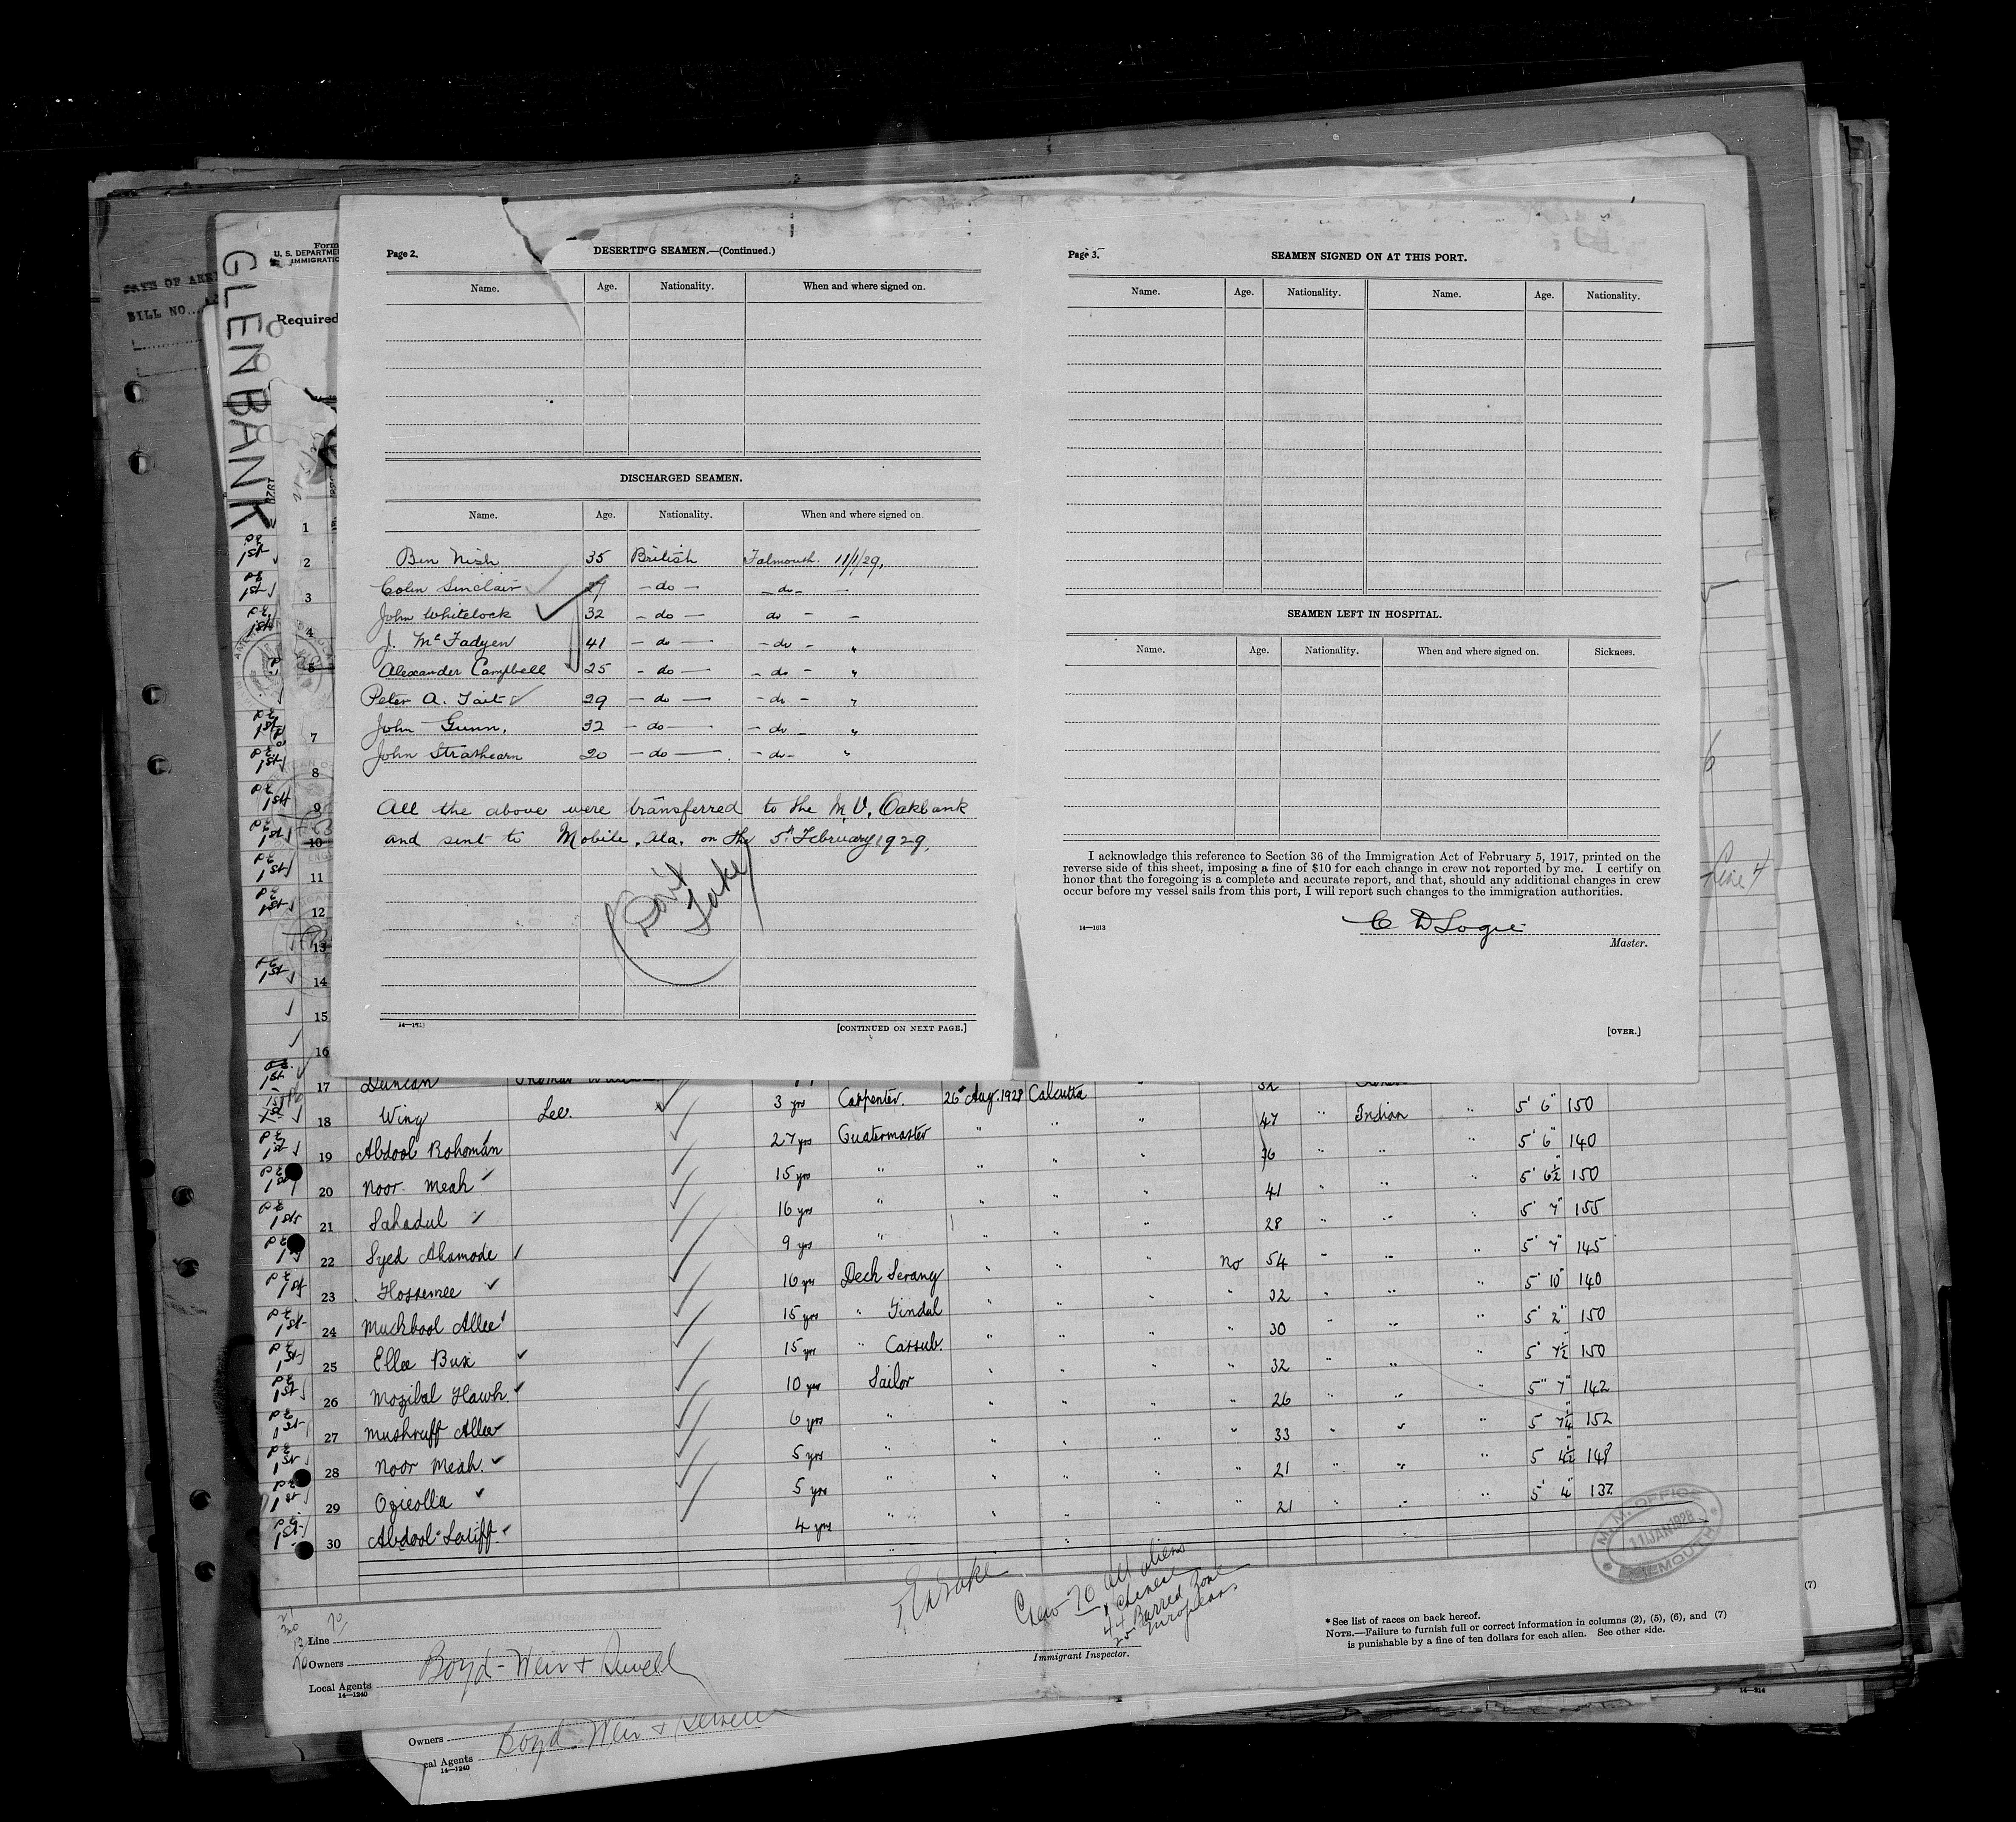 Page 2.
DESERTING SEAMEN.—(Continued.)
Name. Age. Nationality. When and where signed on.
DISCHARGED SEAMEN.
Name. Age. Nationality. When and where signed on.
Ben Nish 35 British Falmouth. 11/1/29.
Colin Sinclair - do - - do - -
John Whitelock 32 - do - do - -
J. McFadyen 41 - do - - do - "
Alexander Campbell 25 - do - - do - "
Peter A. Tait 29 - do - - do - "
John Gunn. 32 - do - - do - "
John Strathearn 20 - do - - do - "
All the above were transferred to the M.V. Oakbank
and sent to Mobile. Ala. on the 5th February 1929.
14—1613
[CONTINUED ON NEXT PAGE.]
Page 3.
SEAMEN SIGNED ON AT THIS PORT.
Name. Age. Nationality. Name. Age. Nationality.
SEAMEN LEFT IN HOSPITAL.
Name. Age. Nationality. When and where signed on. Sickness.
I acknowledge this reference to Section 36 of the Immigration Act of February 5, 1917, printed on the
reverse side of this sheet, imposing a fine of $10 for each change in crew not reported by me. I certify on
honor that the foregoing is a complete and accurate report, and that, should any additional changes in crew
occur before my vessel sails from this port, I will report such changes to the immigration authorities.
C D Logie
14—1613
Master.
[OVER.]
GLENBANK
Form
U. S. DEPARTME
IMMIGRATIO
Required
BILL NO.
1
2
3
4
5
7
8
9
10
11
12
13
14
15
16
17 Duncan Thomas 32
18 Wing Lee. 3 yrs Carpenter. 26th Aug. 1928 Calcutta " 47 " Indian " 5' 6" 150
19 Abdool Rohoman 27 yrs Quatermaster " " " 36 " " " 5' 6" 140
20 Noor Meah 15 yrs " " " " 41 " " " 5' 6½" 150
21 Sahadul 16 yrs " " " " 28 " " " 5' 7" 155
22 Syed Ahamode 9 yrs " " " " No 54 " " " 5' 7" 145
23 Hossemee 16 yrs Deck Serang " " " " 32 " " " 5' 10" 140
24 Muckbool Allee 15 yrs " Tindal " " " " 30 " " " 5' 2" 150
25 Ellee Bux 15 yrs " Cassub. " " " " 32 " " " 5' 7½" 150
26 Mozibal Hawk. 10 yrs Sailor " " " " 26 " " " 5" 7" 142
27 Mushruff Allee 6 yrs " " " " " 33 " " " 5 7¼" 152
28 Noor Meah. 5 yrs " " " " " 21 " " " 5 4½" 148
29 Ozieolla 5 yrs " " " " " 21 " " " 5' 4" 137
30 Abdool Latiff. 4 yrs " "
M. M. OFFICE
11 JAN 1928
Crew 70 all aliens
1 Chinese
44 Barred Zone
25 Europeans
Immigrant Inspector.
* See list of races on back hereof.
NOTE.—Failure to furnish full or correct information in columns (2), (5), (6), and (7)
is punishable by a fine of ten dollars for each alien. See other side.
Line
Owners
Local Agents Boyd-Weir + Sewell
14—1240
Owners
cal Agents Boyd-Weir + Sewell
14—1240
(7)